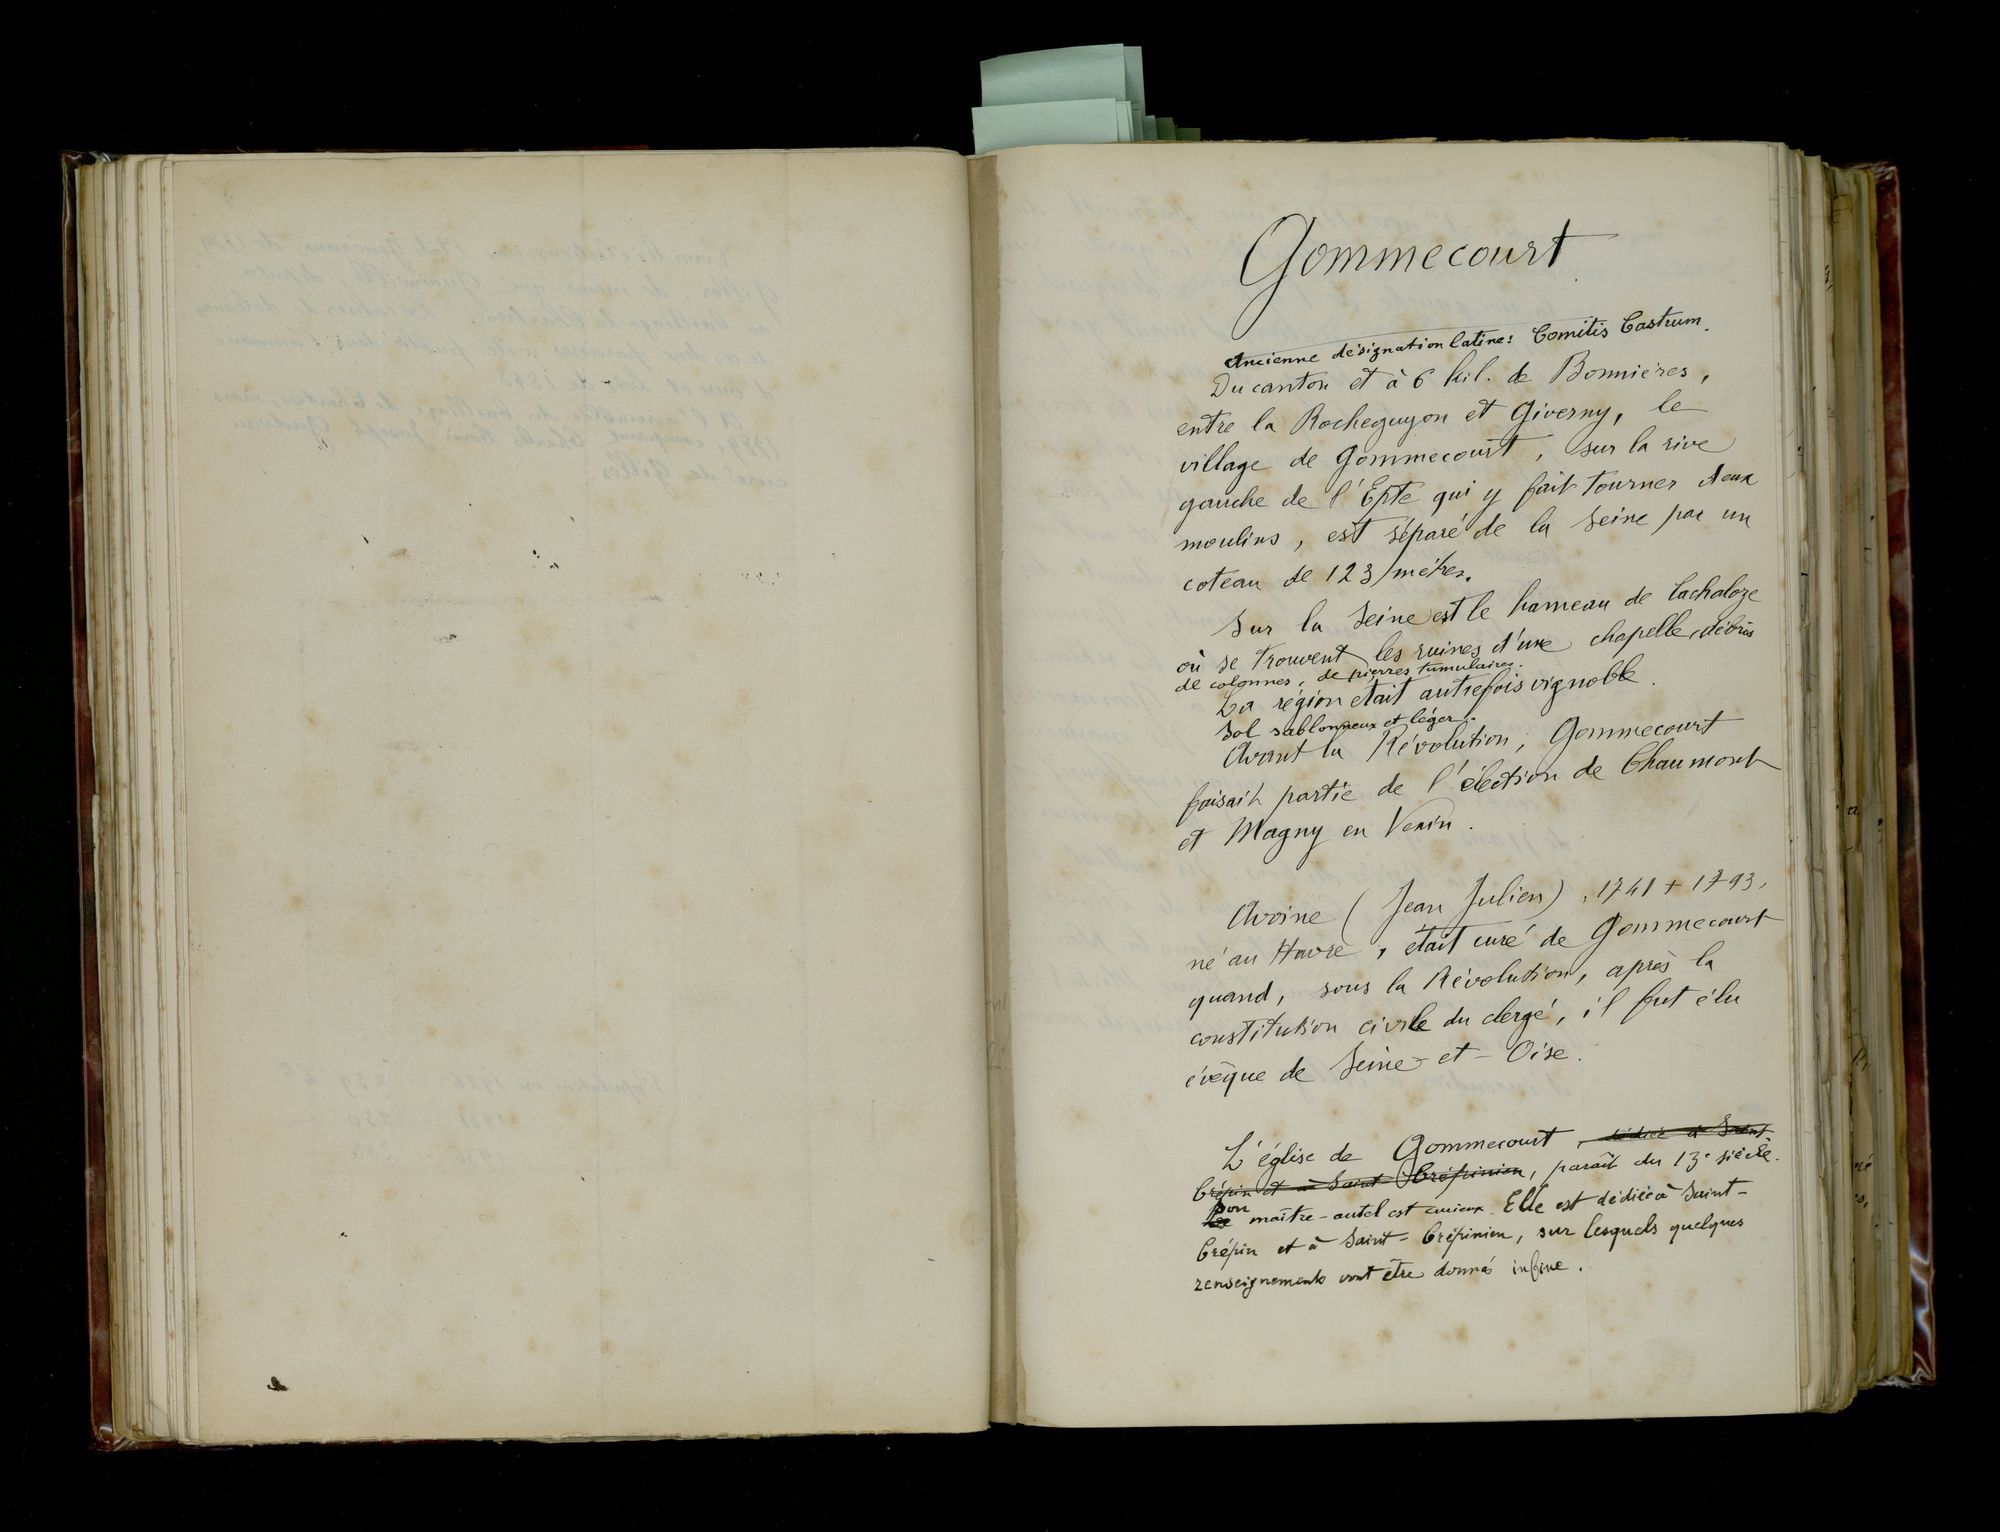 Gommecourt
Ancienne désignation latine: Comitis Castrum.
Du canton et à 6 kil. de Bonnières,
entre la Rocheguyon et Giverny, le
village de Gommecourt, sur la rive
gauche de l'Epte qui y fait tourner deux
moulins, est séparé de la Seine par un
coteau de 123 mètres.
Sur la Seine est le hameau de Lachaloge
où se trouvent les ruines d'une chapelle, débris
de colonnes, de pierres tumulaires.
La région était autrefois vignoble.
Sol sablonneux et léger.
Avant la Révolution, Gommecourt
faisait partie de l'élection de Chaumont
et Magny en Vexin.
Avoine (Jean Julien), 1741 + 1793,
né au Havre, était curé de Gommecourt
quand, sous la Révolution, après la
constitution civile du clergé, il fut élu
évêque de Seine-et-Oise.
L'église de Gommecourt, dédiée à Saint
Crépin et à Saint Crépinien, paraît du 13e siècle.
Son maître-autel est curieux. Elle est dédiée à Saint-
Crépin et à Saint-Crépinien, sur lesquels quelques
renseignements vont être donnés infine.